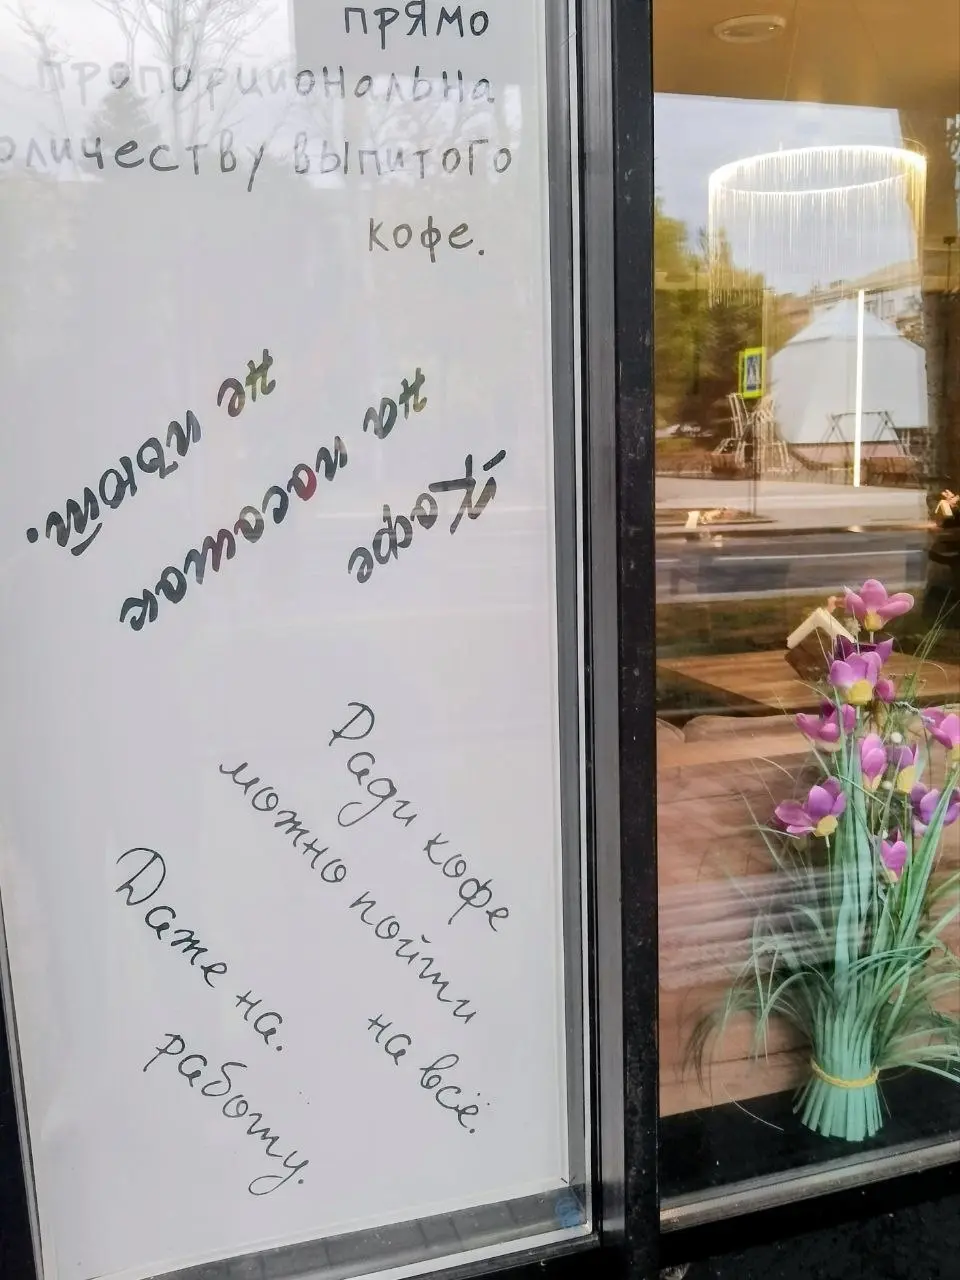 прямо
пропорциональна
оличеству выпитого
кофе.
Кофе
на посошок
не пьют.
Ради кофе
можно пойти
на всё.
Даже на.
работу.